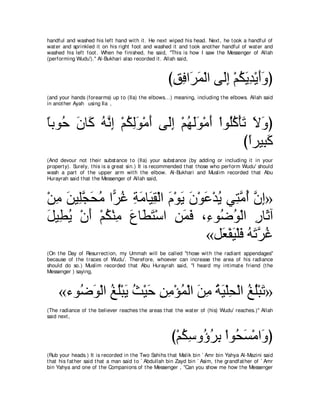 handful and washed his left hand with it. He next wiped his head. Next, he took a handful of
water and sprinkled it on his right foot and washed it and took another handful of water and
washed his left foot. When he finished, he said, "This is how I saw the Messenger of Allah
(performing Wudu')." Al-Bukhari also recorded it. Allah said,
﴿وَأَيْدِيَكُمْ إِلَى الْمَرَافِقِ﴾
(and your hands (forearms) up to (Ila) the elbows...) meaning, including the elbows. Allah said
in another Ayah using Ila ,
﴿وَلاَ تَأْكُلُواْ أَمْوَلَهُمْ إِلَى أَمْوَلِكُمْ إِنَّهُ كَانَ حُوباً
كَبِيراً﴾
(And devour not their substance to (Ila) your substance (by adding or including it in your
property). Surely, this is a great sin.) It is recommended that those who perform Wudu' should
wash a part of the upper arm with the elbow. Al-Bukhari and Muslim recorded that Abu
Hurayrah said that the Messenger of Allah said,
«إِنَّ أُمَّتِي يُدْعَوْنَ يَوْمَ الْقِيَامَةِ غُرًّا مُحَجَّلِينَ مِنْ
آثَارِ الْوُضُوءِ، فَمَنِ اسْتَطَاعَ مِنْكُمْ أَنْ يُطِيلَ
غُرَّتَهُ فَلْيَفْعَل»
(On the Day of Resurrection, my Ummah will be called "those with the radiant appendages"
because of the traces of Wudu'. Therefore, whoever can increase the area of his radiance
should do so.) Muslim recorded that Abu Hurayrah said, "I heard my intimate friend (the
Messenger ) saying,
«تَبْلُغُ الْحِلْيَةُ مِنَ الْمُؤْمِنِ حَيْثُ يَبْلُغُ الْوَضُوء»
(The radiance of the believer reaches the areas that the water of (his) Wudu' reaches.)" Allah
said next,
﴿وَامْسَحُواْ بِرُؤُوسِكُمْ﴾
(Rub your heads.) It is recorded in the Two Sahihs that Malik bin `Amr bin Yahya Al-Mazini said
that his father said that a man said to `Abdullah bin Zayd bin `Asim, the grandfather of `Amr
bin Yahya and one of the Companions of the Messenger , "Can you show me how the Messenger